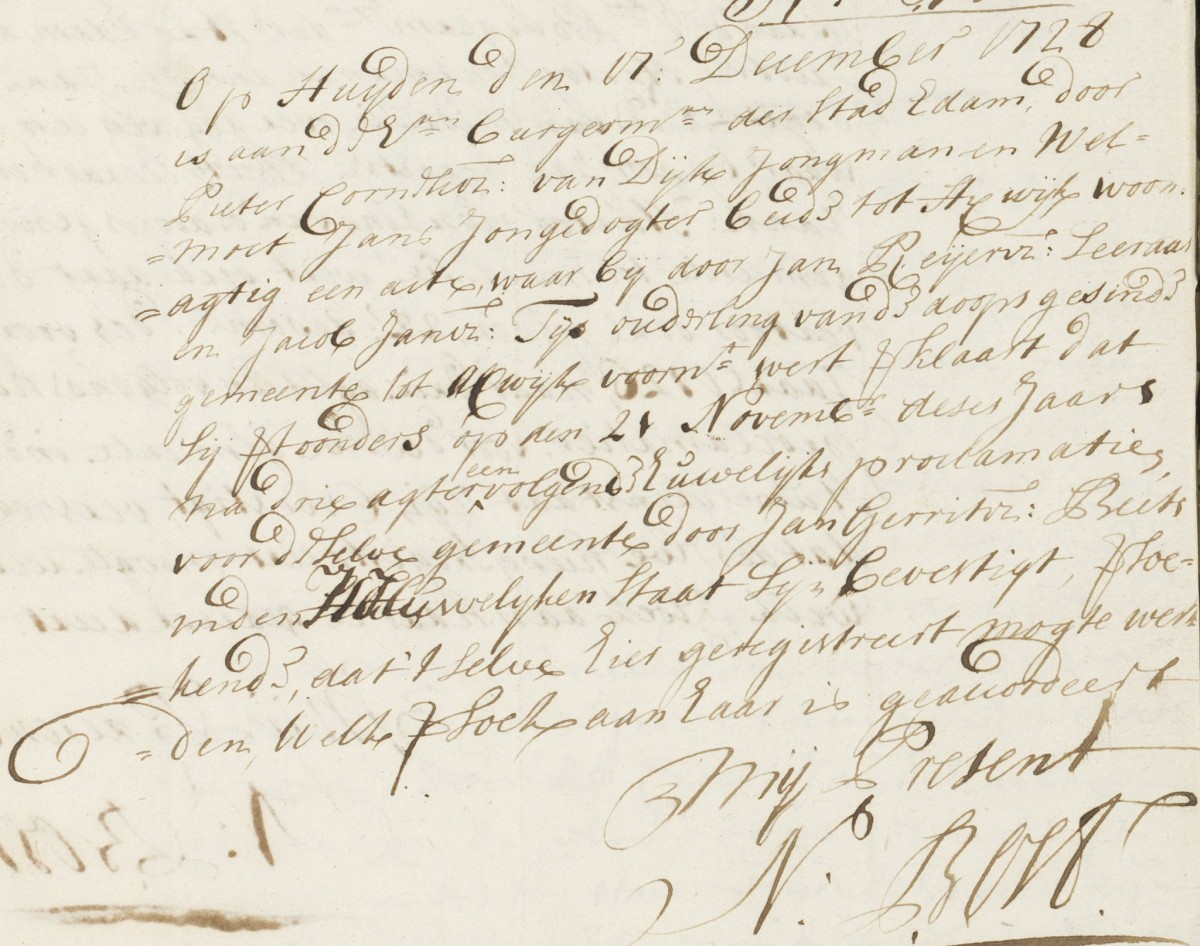 Op Huijden den 17: December 1728
is aan d' E: burgerm:ren der stad Edam, door
Pieter Cornelisz: van Dijk Jongman en Wel-
=moet Jans Jongedogter beide tot Axwijk woon=
=agtig een acte, waar bij door Jan Reijersz: Leeraar
en Jacob Jansz: Tijs ouderling vande doopsgesinde
gemeente tot Axwijk voorn:t wert verklaart dat
sij verthoonders op den 21 Novemb:r deses Jaars
na drie agter een volgende Huwelijks proclamatie,
voor de selve gemeente door Jan Gerritsz: Beets
in den Huwelijken staat sijn bevestigt, versoe=
=kende, dat 't selve hier geregistreert mogte wer=
=den, welk versoek aan haar is geaccordeert
Mij Present
N. Bost.